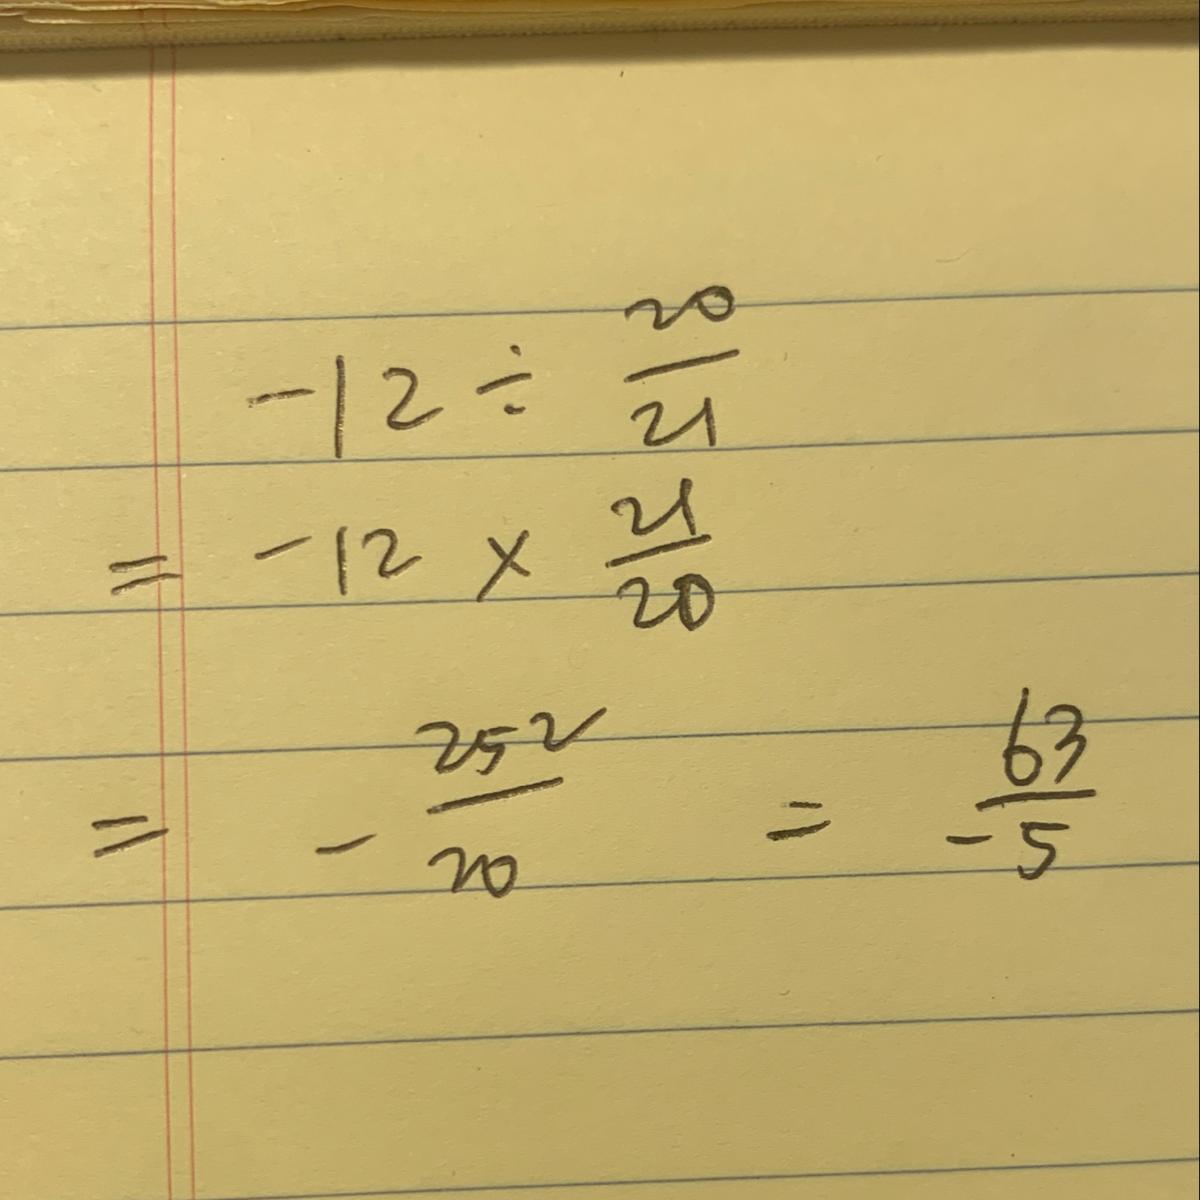 -12 ÷ 20/21
= -12 × 21/20
= - 252/20 = 63/-5